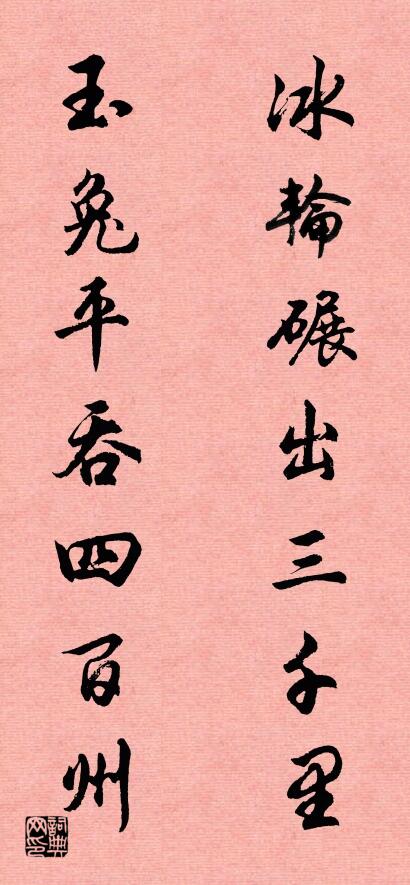 冰輪碾出三千里
玉兔平吞四百州
詞典网印